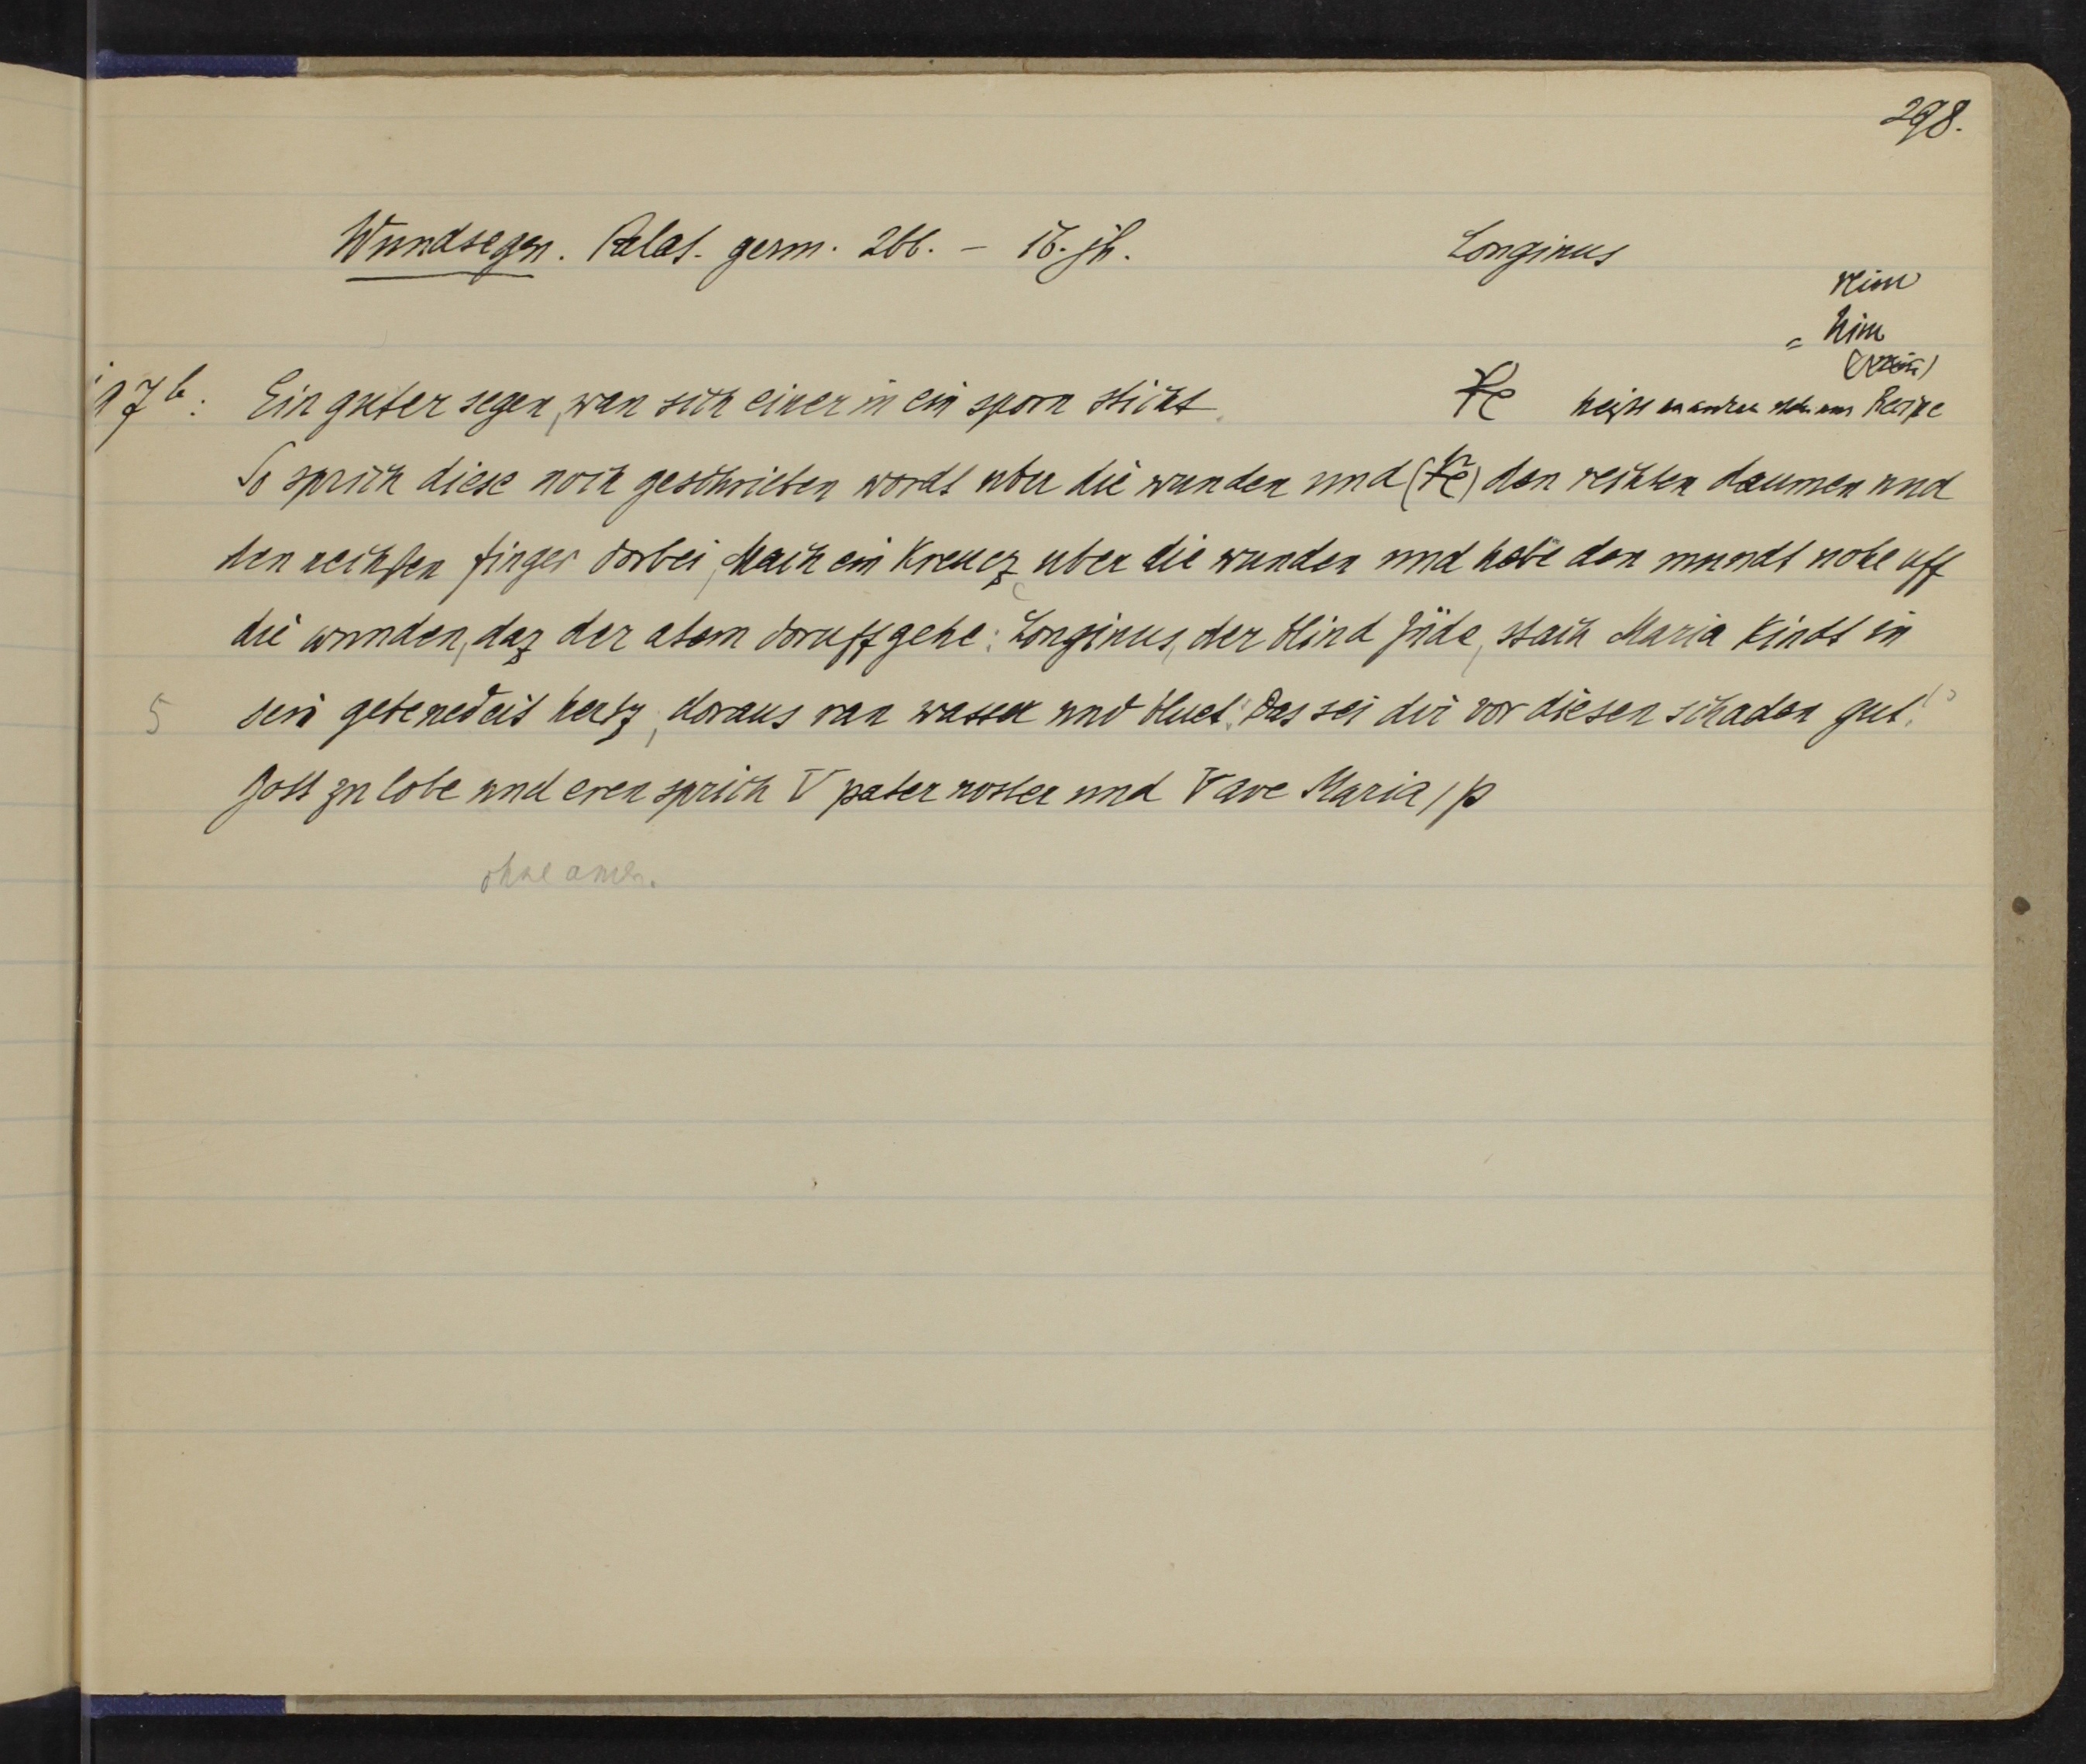 298.
Wundsegen. Palat. germ. 266. – 16. jh. Longinus
nim
= nim
17b: Ein guter segen, wan sich einer in ein sporn sticht. Re heißt an andren stellen nur Recipe
So sprich diese noch geschriben wordt uber die wunden und (Re) den rechten daumen und
den nechsten finger dorbei, Mach ein Kreucz uber die wunden und hebe den mundt nohe uff
die wunden, daz der atem doruff gehe: Longinus, der blind Jüde, stach Maria Kindt in
5 sein gebenedeit hertz, doraus ran wasser und bluet. Das sei dir vor diesen schaden gut!
Gott zu lobe und eren sprich V pater noster und V ave Maria / p
ohne amen.